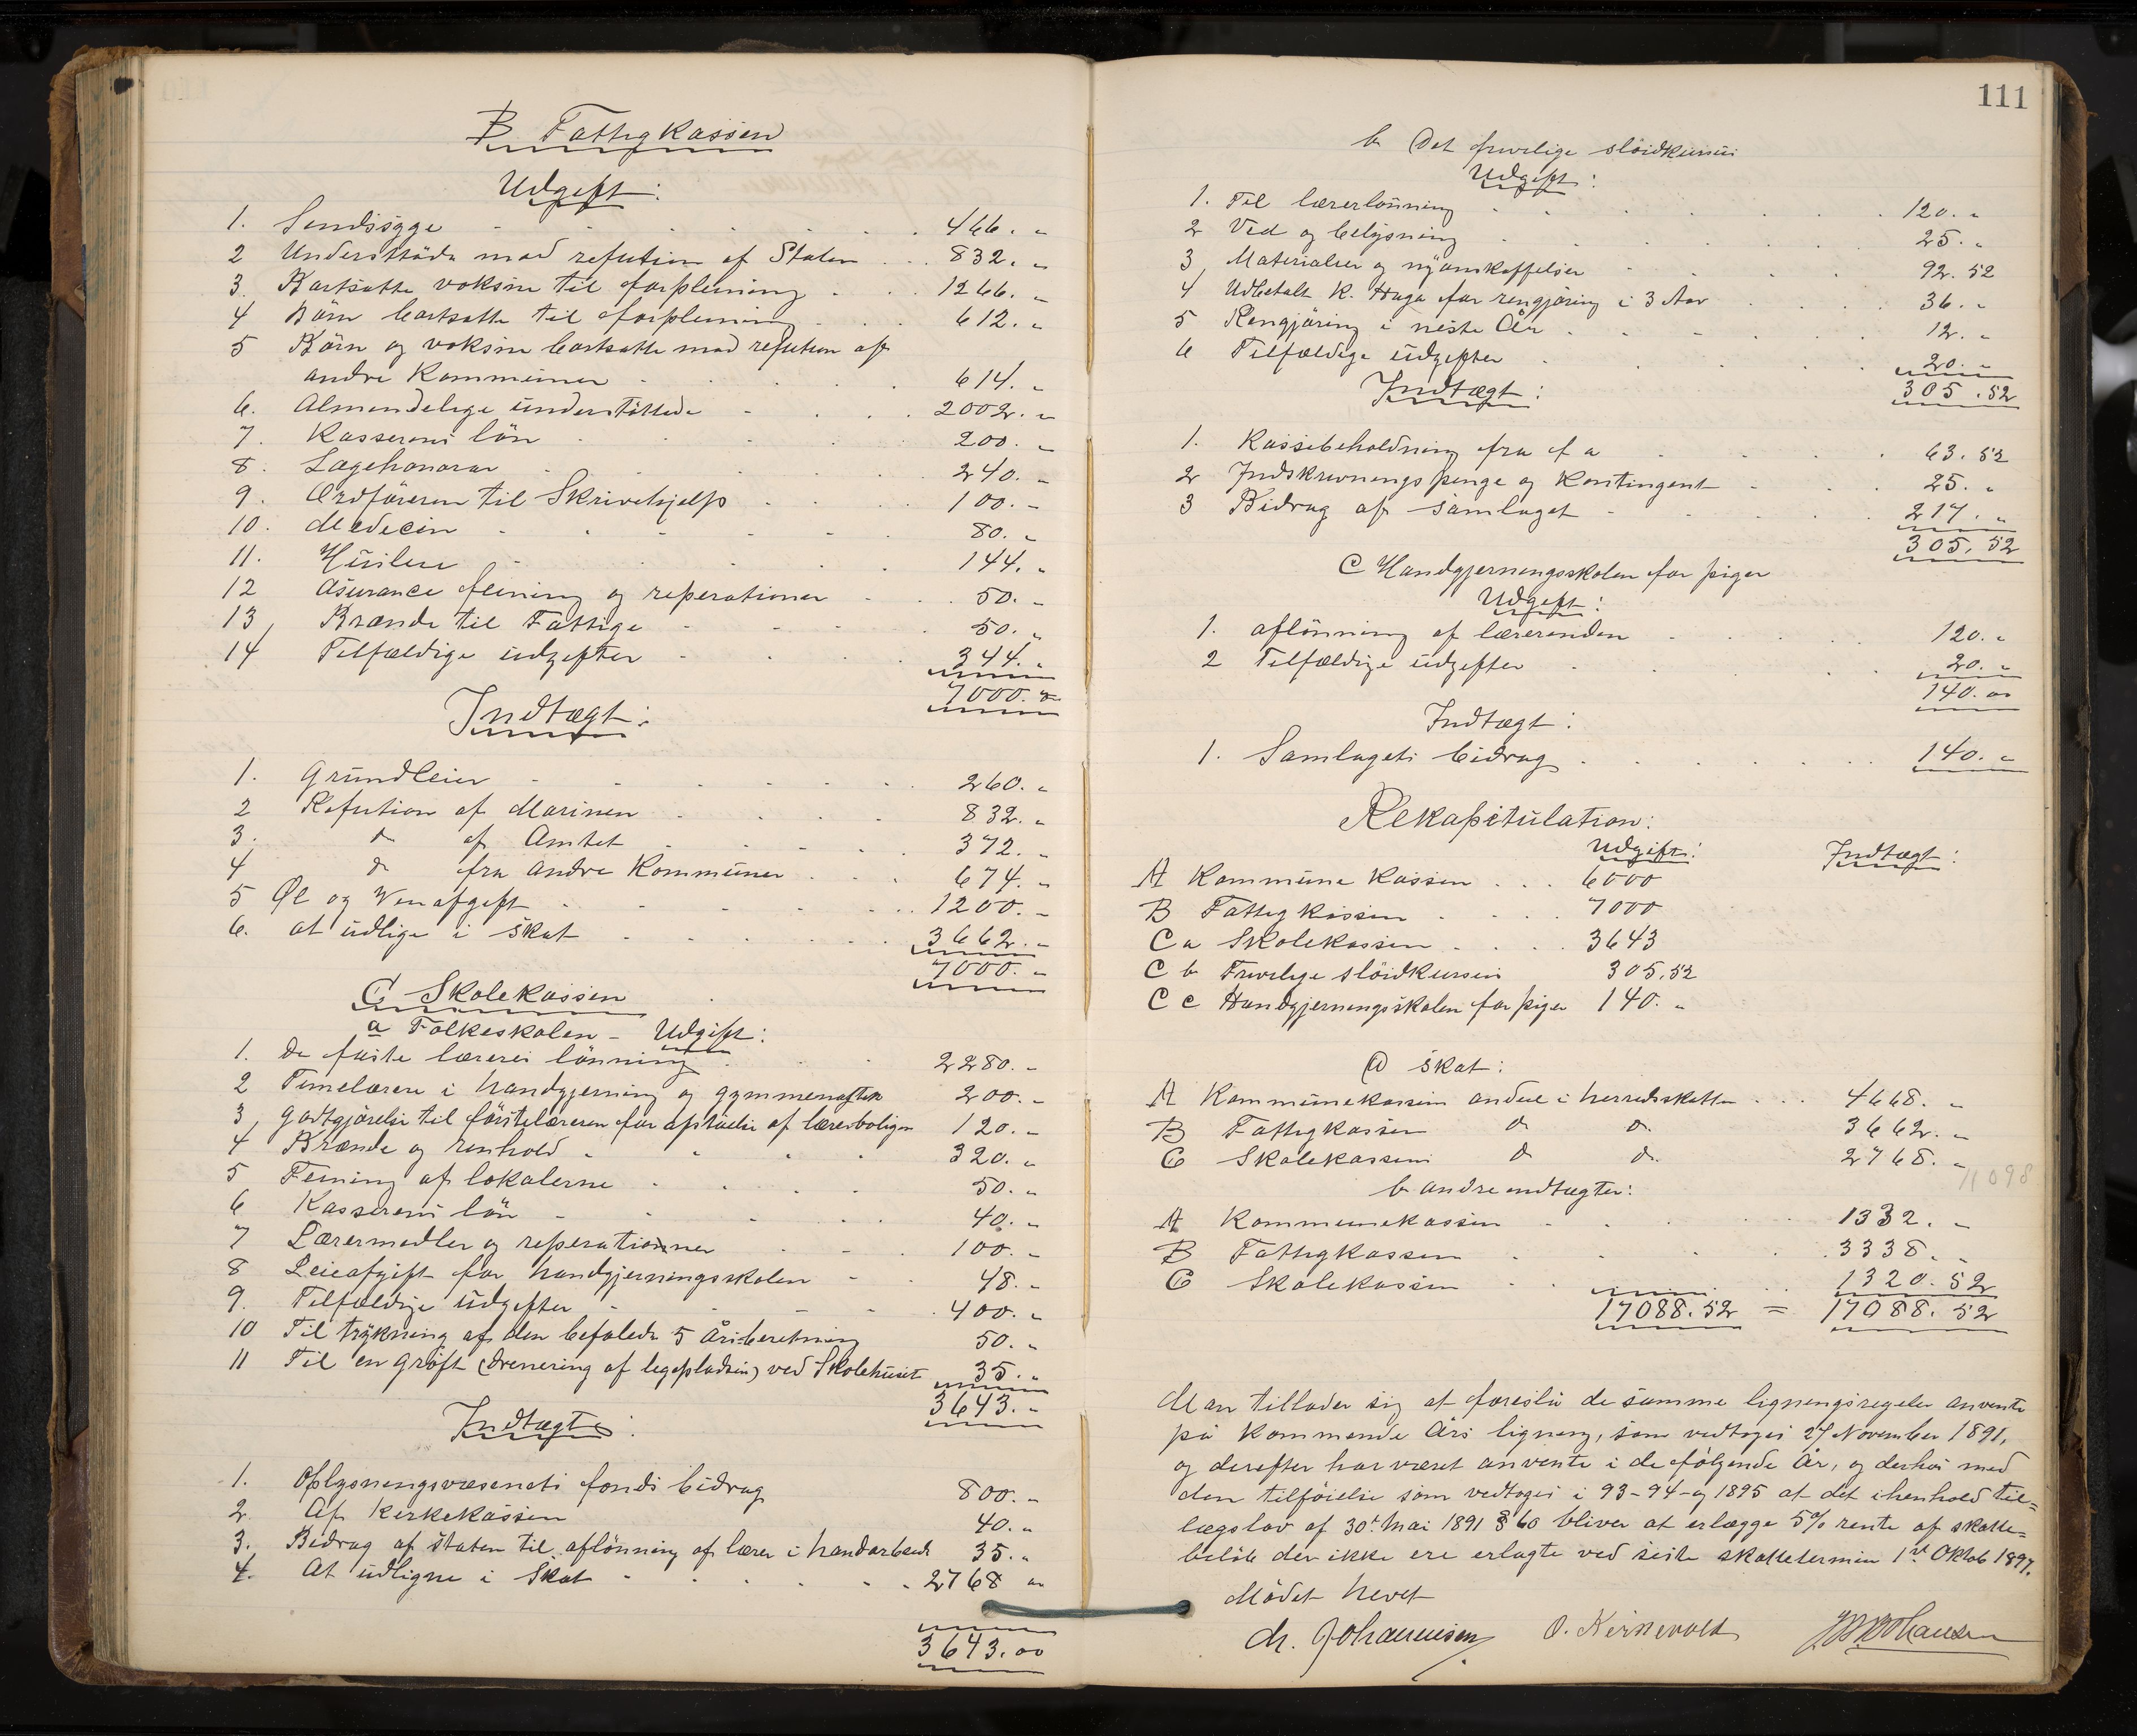 B Fattigkassen
Udgift:
1. Sindssyge 466. "
2 Understøtte mod refution af Staten 832. "
3. Bortsatte voksne til forpleining 1266. "
4 Börn bortsatte til forpleining 612. "
5 Börn og voksne bortsatte mod refution af
andre Kommuner 614. "
6. Almindelige understöttede 2002. "
7. Kassererens lön 200. "
8. Lægehonorar 240. "
9. Ordföreren til Skrivehjelp 100. "
10. Medecin 80. "
11. Husleie 144. "
12 Asurance feining og reperationer 50. "
13 Brænde til Fattige 50. "
14 Tilfældige udgifter 344. "
7000. "
Indtægt:
1. Grundleier 260. "
2 Refution af Marinen 832. "
3. do af Amtet 372. "
4 do fra andre Kommuner 674. "
5 Øl og Vinafgift 1200. "
6. at udligne i Skat 3662. "
7000. "
C Skolekassen
a Folkeskolen - Udgift:
1. De faste læreres lönning 2280. "
2 Timelærere i handgjerning og gymmenastik 200. "
3 godtgjörelse til förstelæreren for afståelse af lærerboligen 120. "
4 Brænde og renhold 320. "
5 Feining af lokalerne 50. "
6 Kassererens lön 40. "
7 Lærermedler og reperationner 100. "
8 Leieafgift for handgjerningsskolen 48. "
9. Tilfældige udgifter 400. "
10 Til trykning af den befalede 5 årsberetning 50. "
11 Til en gröft (drenering af legepladsen) ved Skolehuset 35. "
3643. "
Indtægt:
1. Oplysningsvæsenets fonds bidrag 800. "
2. Af Kirkekassen 40. "
3. Bidrag af staten til aflönning af lærer i handarbeide 35. "
4. At udligne i Skat 2768 "
3643.00
111
b Det frivilige slöidkursus
Udgift:
1. Til lærerlönning 120. "
2 Ved og belysning 25. "
3 Materialier og nyanskaffelser 92. 52
4 Udbetalt K. Haga for rengjöring i 3 Aar 36. "
5 Rengjöring i neste År 12. "
6 Tilfældige udgifter 20. "
305. 52
Indtægt:
1. Kassebeholdning fra f a 63. 52
2 Indskrivningspenge og Kontingent 25. "
3 Bidrag af samlaget 217. "
305. 52
C Handgjerningsskolen for piger
Udgift:
1. aflönning af lærerinden 120. "
2 Tilfældige udgifter 20. "
140. 00
Indtægt:
1. Samlagets bidrag 140. "
Rekapitulation:
Udgift: Indtægt:
A Kommune Kassen 6000
B Fattig Kassen 7000
C a Skolekassen 3643
C b Frivilige slöidkursus 305,52
C c Handgjerningsskolen for piger 140. "
a skat:
A Kommunekassens andel i herredsskatten 4668. "
B Fattigkassens do do 3662. "
C Skolekassens do do 2768. "
11098
b andre indtægter:
A Kommunekassen 1332. "
B Fattigkassen 3338. "
C Skolekassen 1320. 52
17088. 52 = 17088. 52
Man tillader sig at foreslå de samme ligningsregeler anvente
på kommende Års ligning, som vedtoges 27 November 1891,
og derefter har været anvente i de fölgende År, og derhos med
den tilföielse som vedtoges i 93-94- og 1895 at det i henhold til=
lægslov af 30t Mai 1891 § 60 bliver at erlægge 5% rente af skatte=
belöb der ikke ere erlagte ved siste skattetermin 1st Oktob 1897.
Mödet hevet
M. Johannesen O. Kirkevold